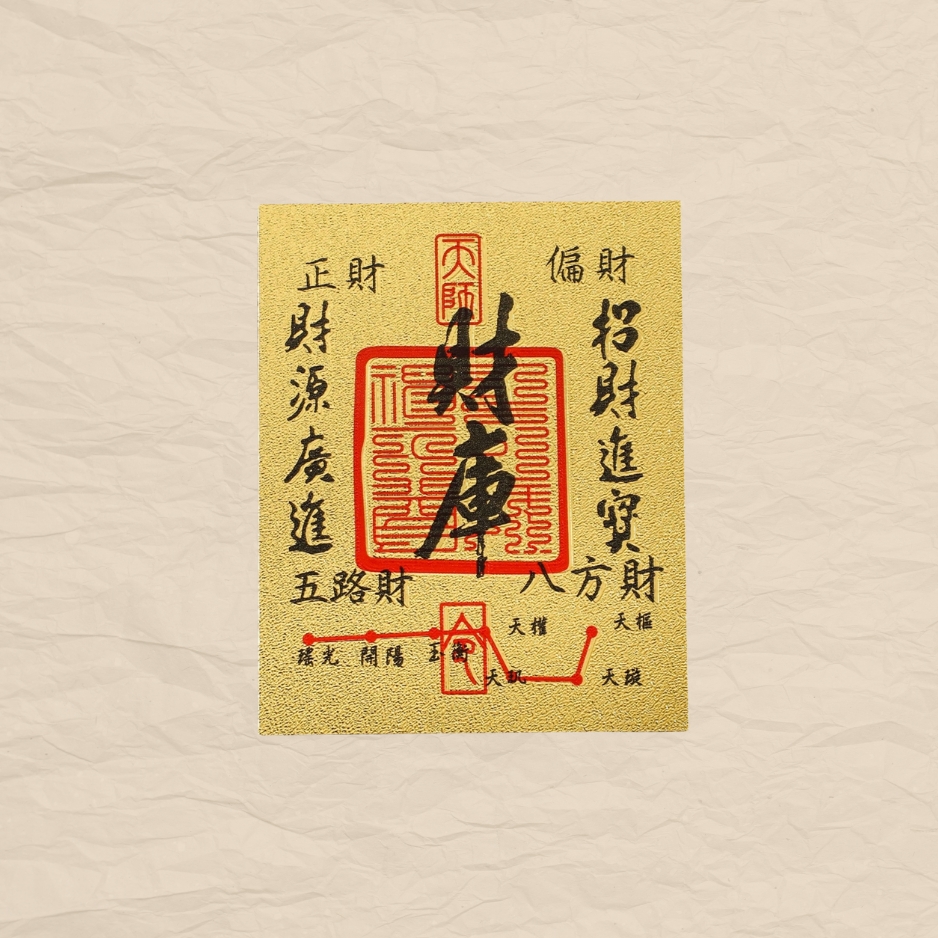 天師
偏財
招財進寶
八方財
財庫
正財
財源廣進
五路財
天權
天樞
瑤光
開陽
玉衡
天璣
天璇